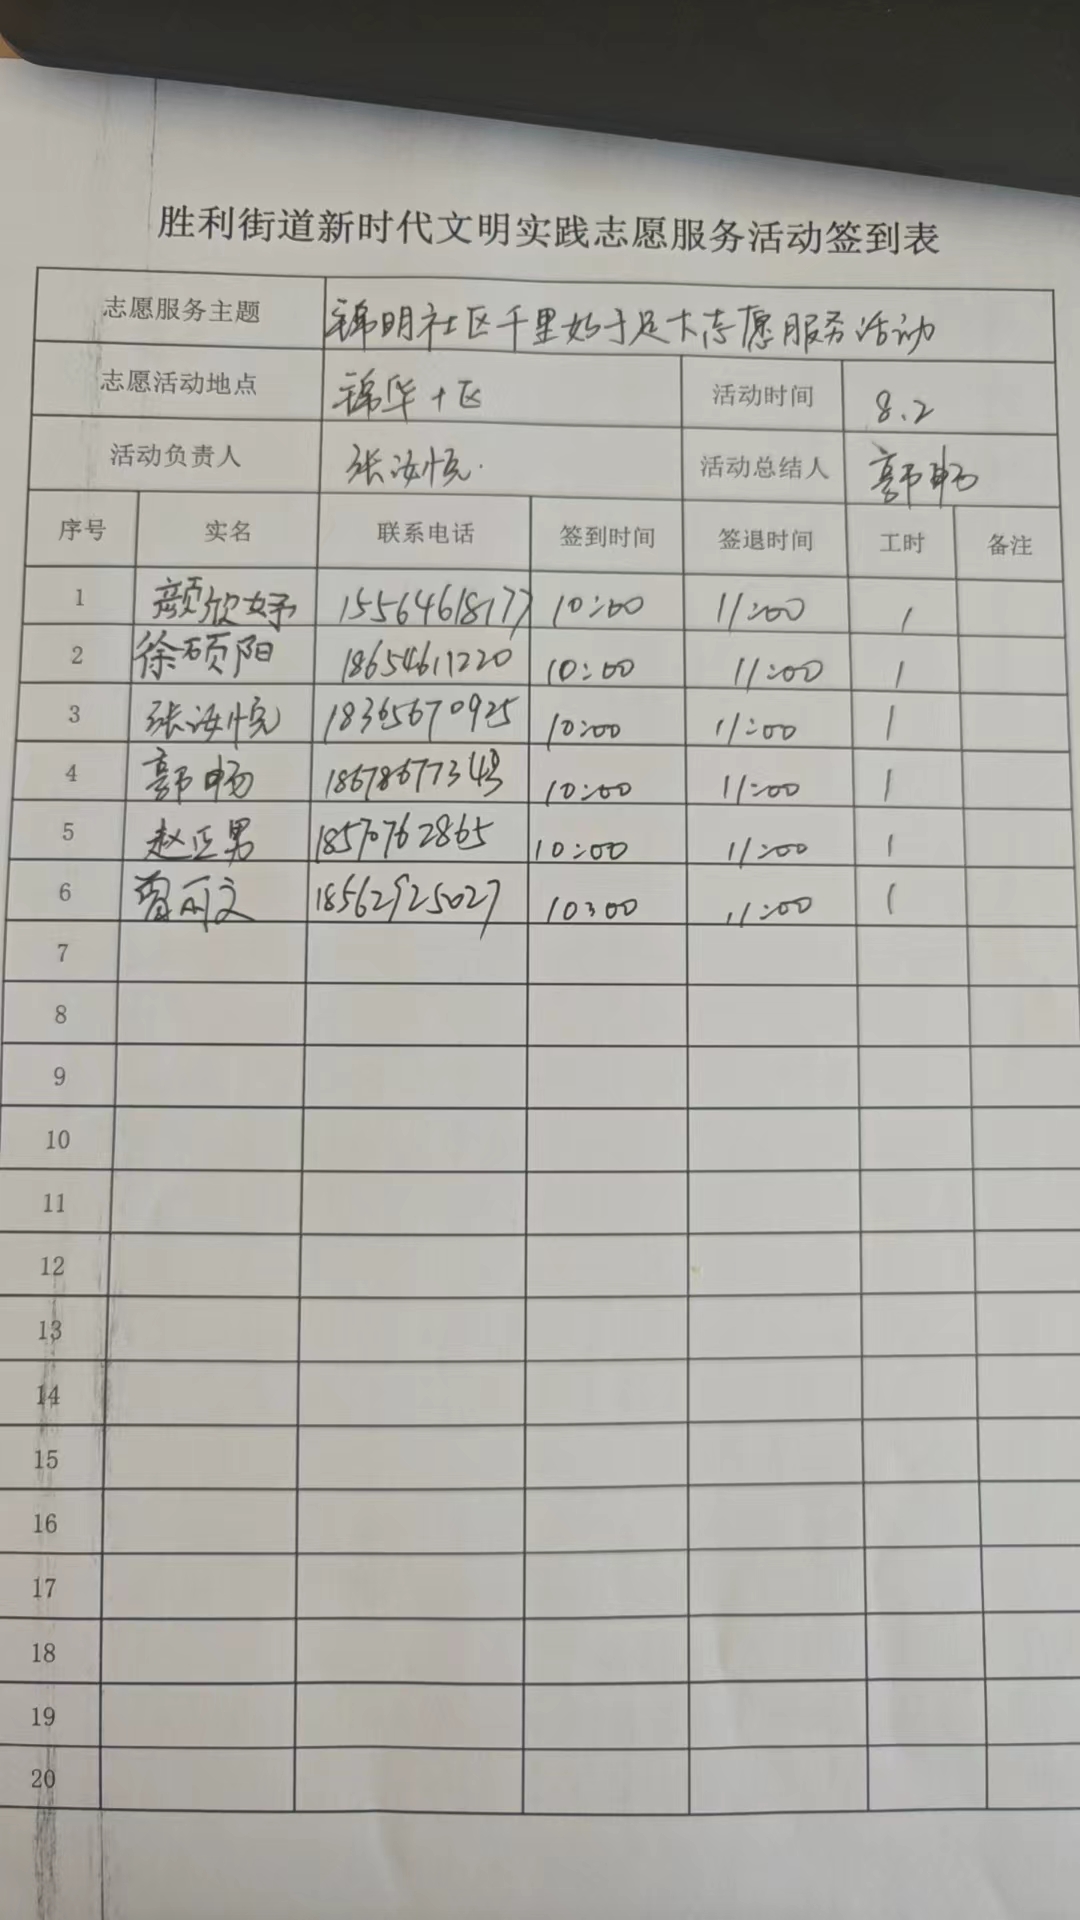 胜利街道新时代文明实践志愿服务活动签到表
志愿服务主题 锦明社区千里始于足下志愿服务活动
志愿活动地点 锦华十区 活动时间 8.2
活动负责人 张汝悦 活动总结人 郭畅
序号 实名 联系电话 签到时间 签退时间 工时 备注
1 颜欣妤 15564618177 10:00 11:00 1
2 徐硕阳 18654611220 10:00 11:00 1
3 张汝悦 18365670925 10:00 11:00 1
4 郭畅 18678677343 10:00 11:00 1
5 赵正男 18570762865 10:00 11:00 1
6 18562925027 10:00 11:00 1
7
8
9
10
11
12
13
14
15
16
17
18
19
20